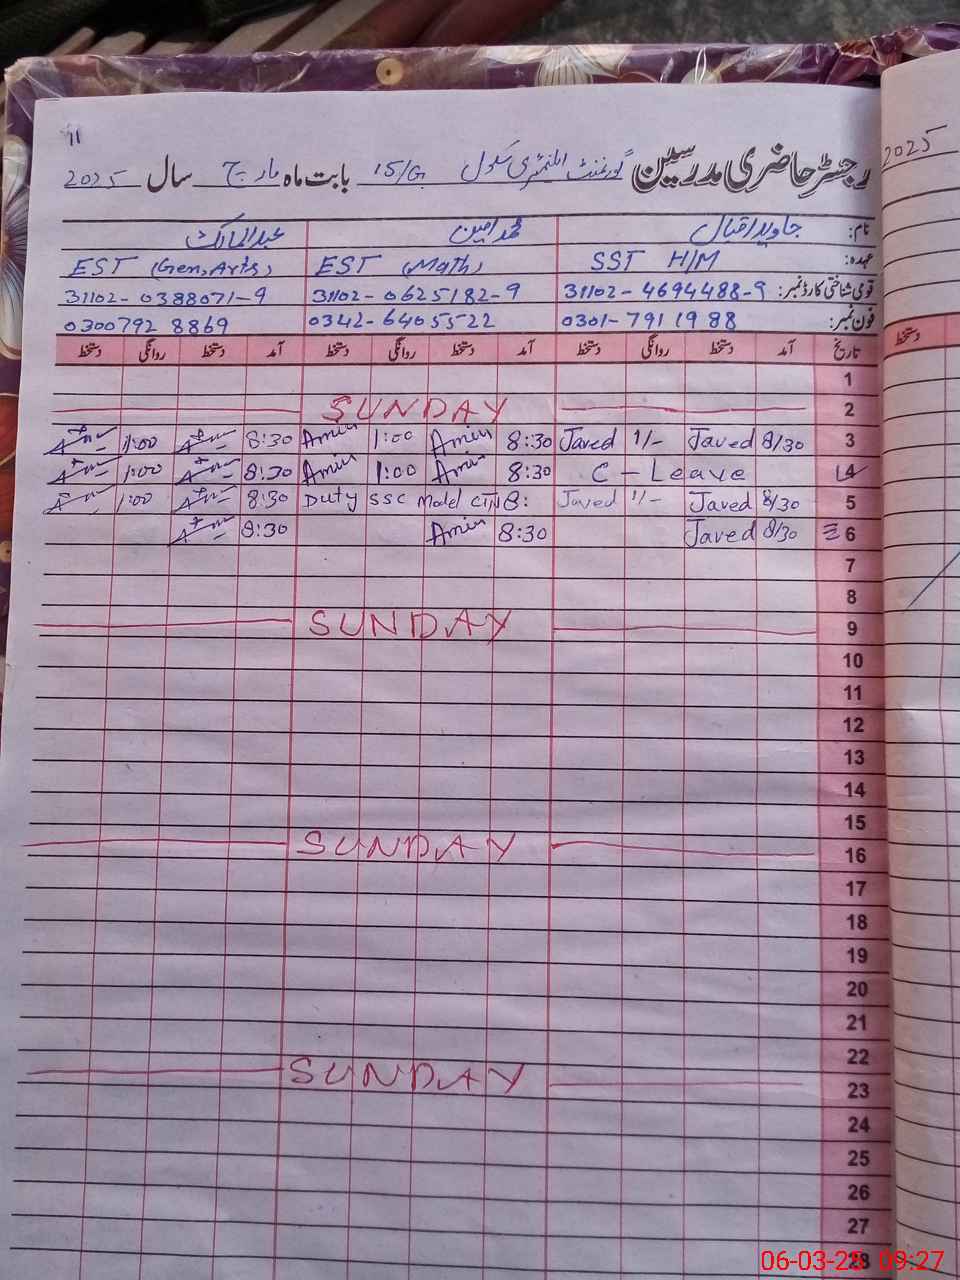 11
رجسٹر حاضری مدرسین گورنمنٹ ایلیمنٹری سکول 15/G بابت ماہ مارچ سال 2025
2025
نام: جاوید اقبال محمد امین عبدالمالک
عہدہ: SST H/M EST (Math) EST (Gen, Arts)
قومی شناختی کارڈ نمبر: 31102-4694488-9 31102-0625182-9 31102-0388071-9
فون نمبر: 0301-7911988 0342-6405522 0300792 8869
تاریخ آمد دستخط روانگی دستخط آمد دستخط روانگی دستخط آمد دستخط روانگی دستخط
دستخط
1
SUNDAY 2
1:00 8:30 Amin 1:00 Amin 8:30 Javed 1/- Javed 8/30 3
1:00 8:30 Amin 1:00 Amin 8:30 C-Leave L4
1:00 8:30 Duty SSC Model Javed 1/- Javed 8/30 5
8:30 Amin 8:30 Javed 8/30 6
7
8
SUNDAY 9
10
11
12
13
14
15
SUNDAY 16
17
18
19
20
21
22
SUNDAY 23
24
25
26
27
28
06-03-25 09:27